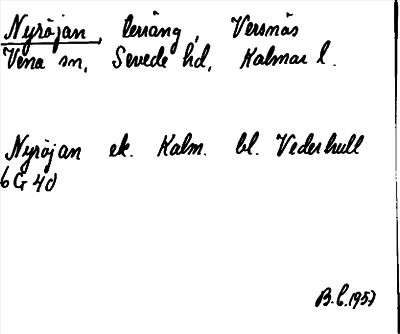 Nyröjan, teräng, Versnäs
Vena sn, Sevede hd, Kalmar l.
Nyröjan ek. Kalm. bl. Vederhult
6 G 4d
B.L. 1957